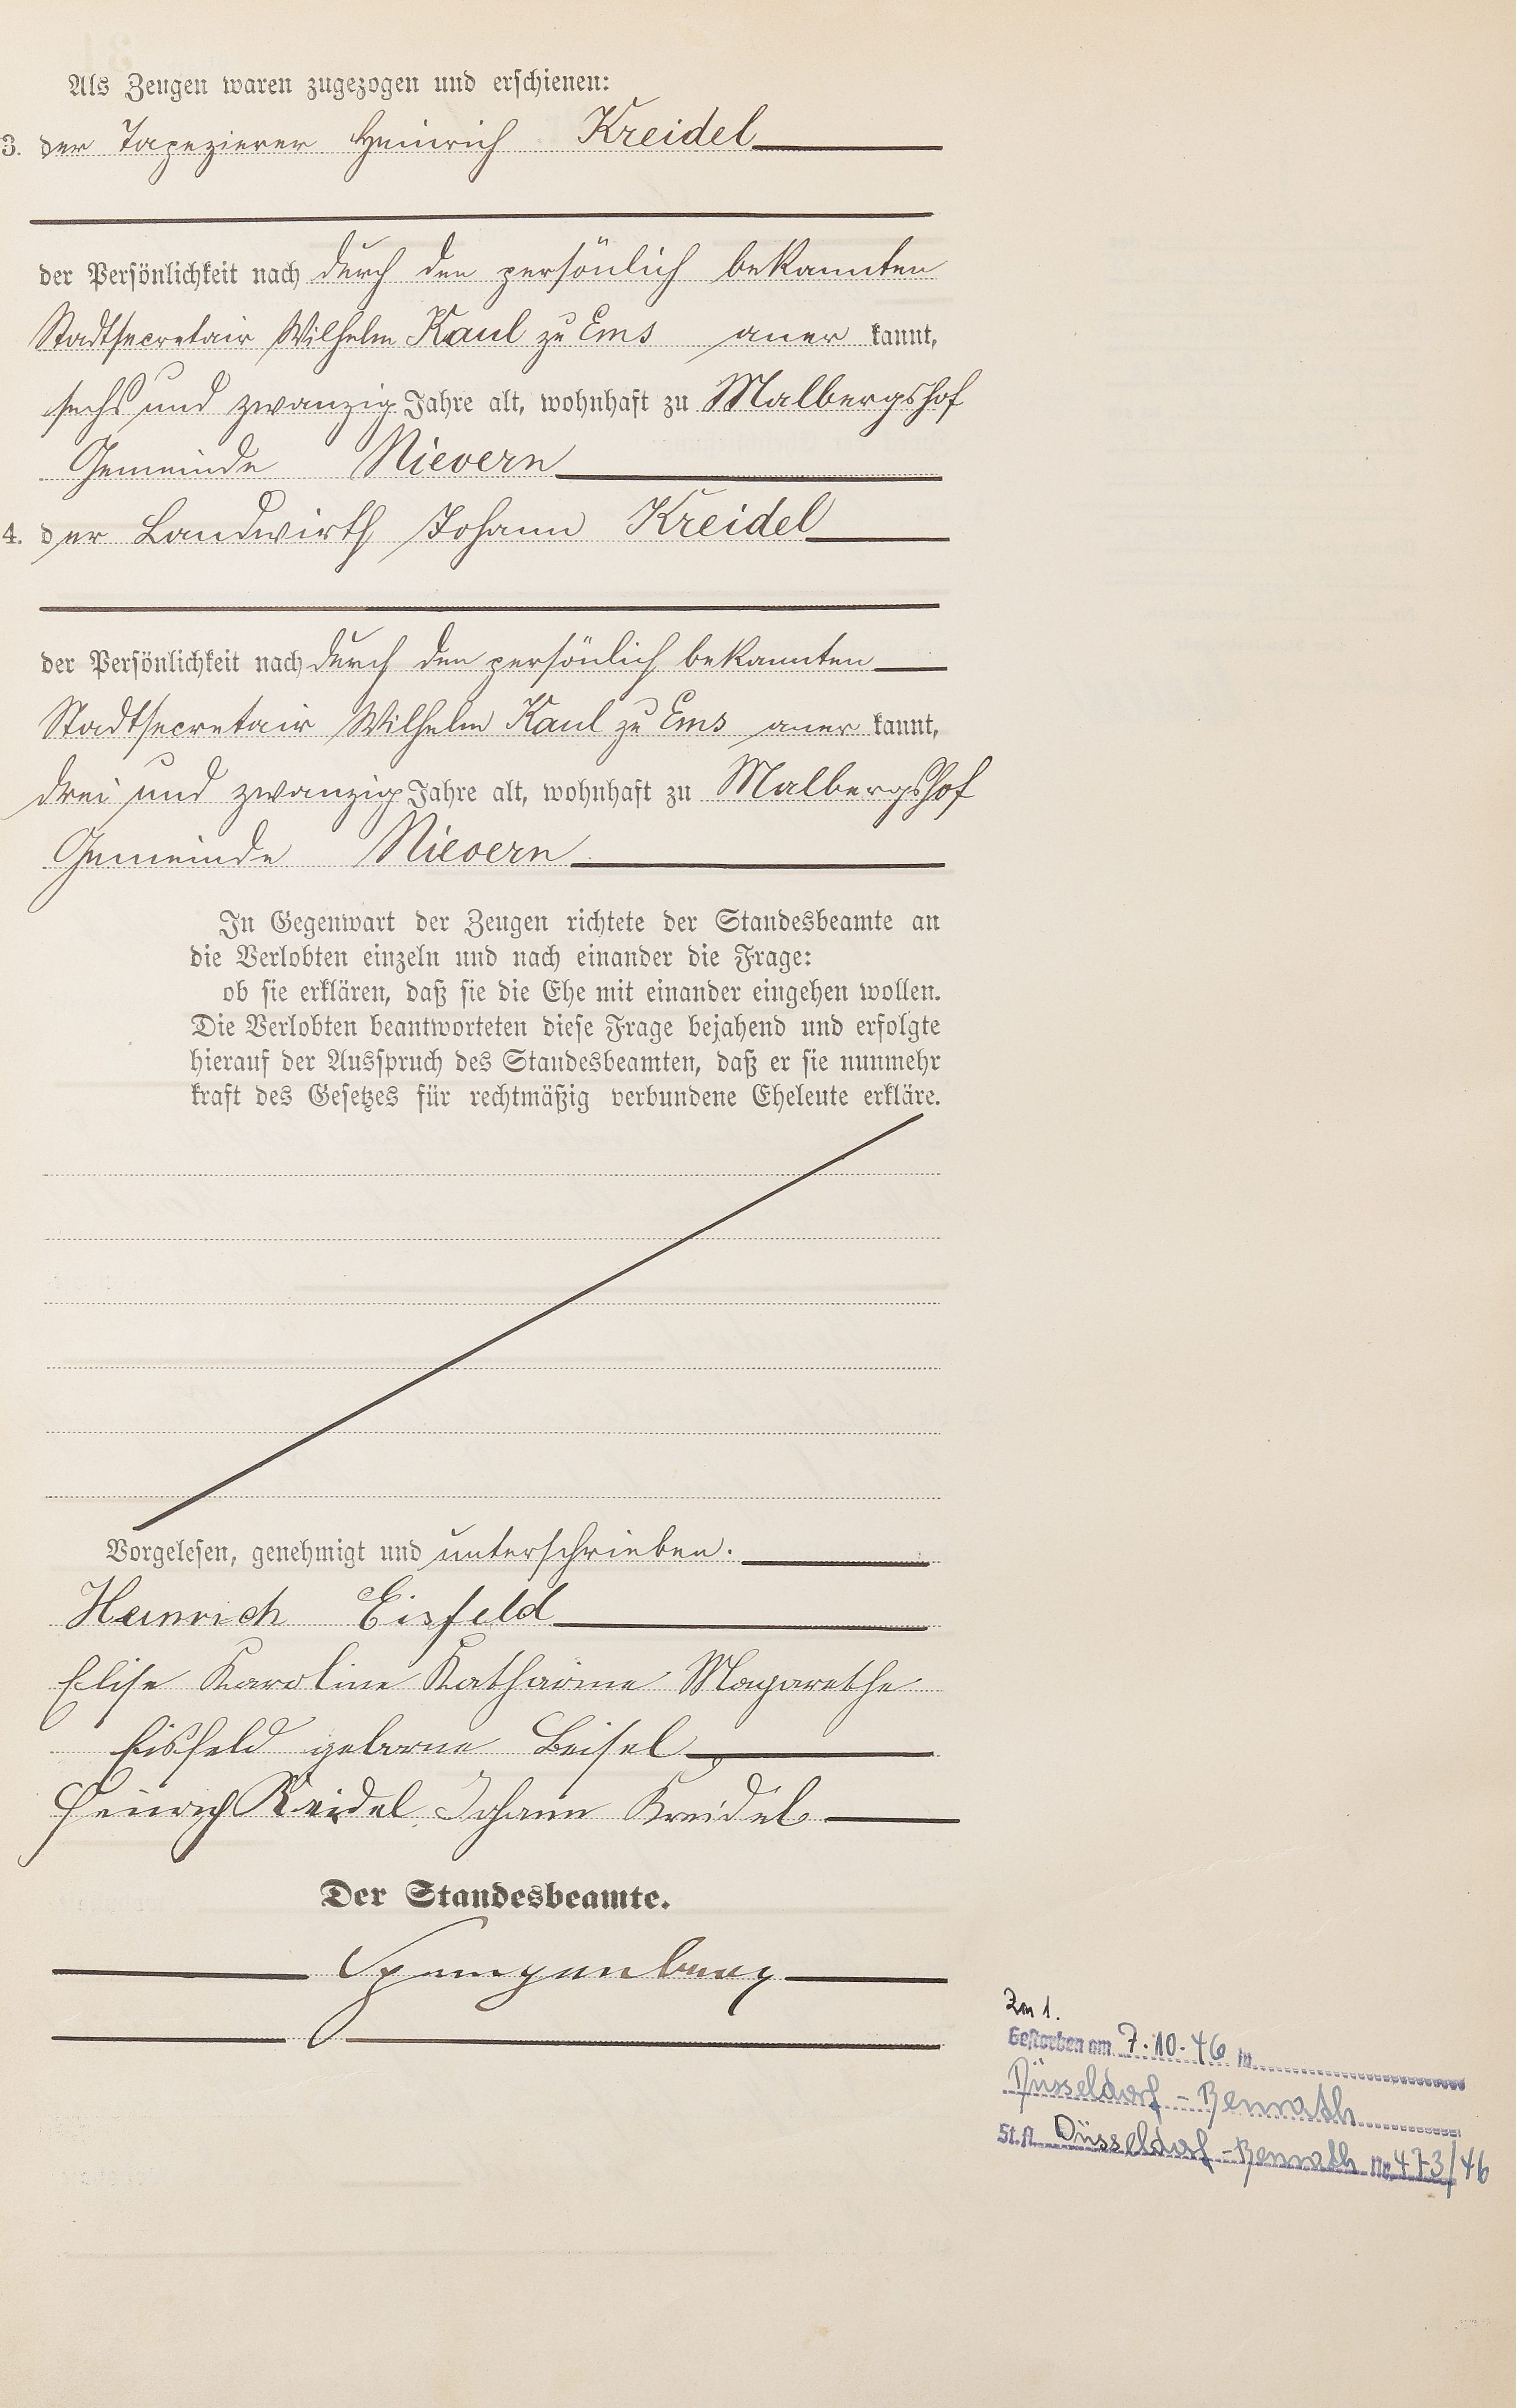 Als Zeugen waren zugezogen und erschienen:
3. der Tapezierer Heinrich Kreidel
der Persönlichkeit nach durch den persönlich bekannten
Stadtsecretair Wilhelm Kaul zu Ems aner kannt,
sechs und zwanzig Jahre alt, wohnhaft zu Malbergshof
Gemeinde Nievern
4. der Landwirth Johann Kreidel
der Persönlichkeit nach durch den persönlich bekannten
Stadtsecretair Wilhelm Kaul zu Ems aner kannt,
drei und zwanzig Jahre alt, wohnhaft zu Malbergshof
Gemeinde Nievern
In Gegenwart der Zeugen richtete der Standesbeamte an
die Verlobten einzeln und nach einander die Frage:
ob sie erklären, daß sie die Ehe mit einander eingehen wollen.
Die Verlobten beantworteten diese Frage bejahend und erfolgte
hierauf der Ausspruch des Standesbeamten, daß er sie nunmehr
kraft des Gesetzes für rechtmäßig verbundene Eheleute erkläre.
Vorgelesen, genehmigt und unterschrieben.
Heinrich Eisfeld
Elise Karoline Katharine Magarethe
Eisfeld geborne Beisel
Heinrich Kreidel Johann Kreidel
Der Standesbeamte.
Spangenberg
Zu 1.
Gestorben am 7.10.46 in
Düsseldorf-Benrath
St.A. Düsseldorf-Benrath Nr. 473/46